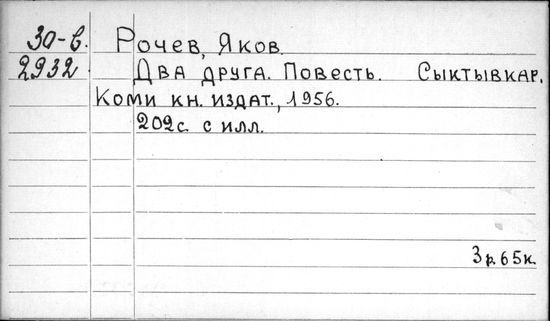 30-б. Рочев, Яков.
2932. Два друга. Повесть. Сыктывкар,
Коми кн. издат., 1956.
202с. с илл.
3р.65к.